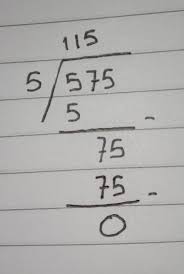 115
5 575
5 -
75
75 -
0